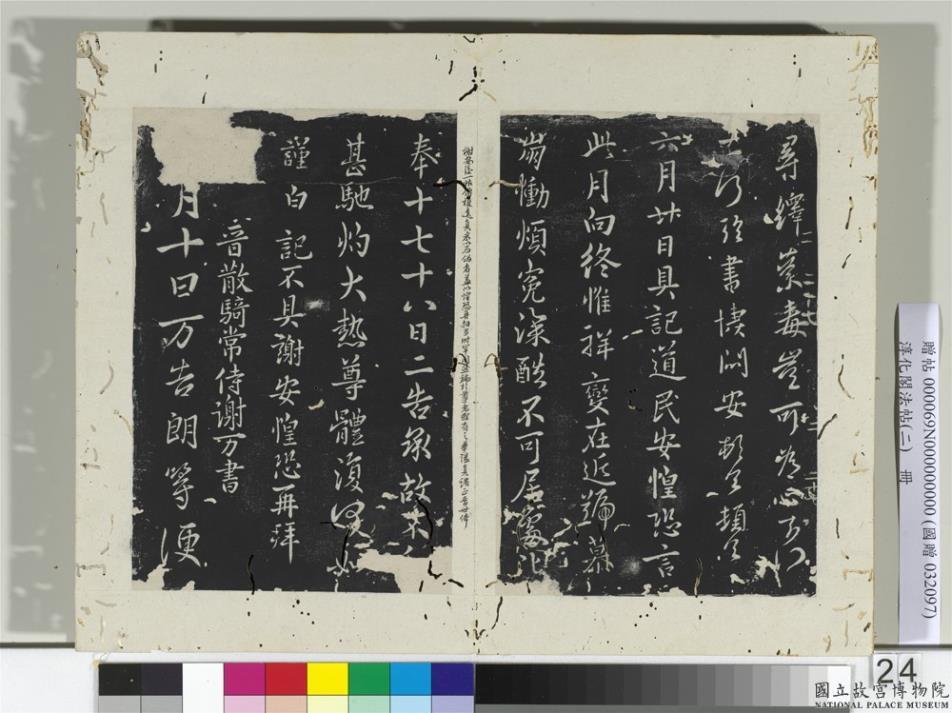 尋繹荼毒豈可為心奈何
奈何臨書悽悶安頓首頓首
六月廿日具記道民安惶恐言
此月向終惟祥變在近號慕
崩慟煩冤深酷不可居處比
奉十七十八日二告承故不
甚馳灼大熱尊體復何
謹白記不具謝安惶恐再拜
晉散騎常侍謝万書
月十日万告朗等便
贈帖 000069N000000000 (國贈 032097)
淳化閣法帖(二) 冊
24
國立故宮博物院
NATIONAL PALACE MUSEUM